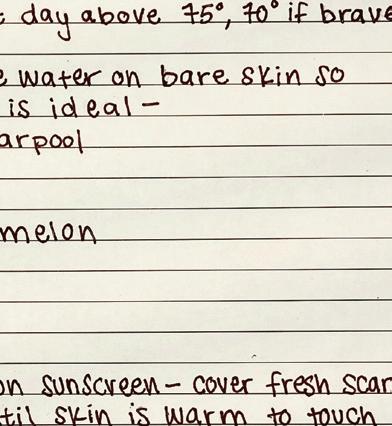 day above 75°, 70° if brave
water on bare skin so
is ideal -
arpool
melon
on sunscreen - cover fresh scar
til skin is warm to touch